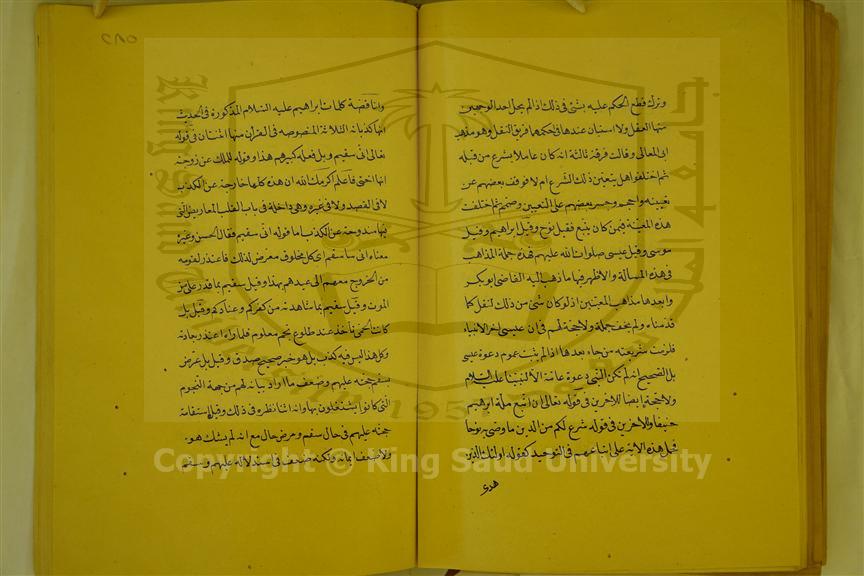 وترك قطع الحكم عليه بشئ في ذلك اذ لم يحل احد الوجهين
منها العقل ولا استبان عندها في احكمها طريق النقل وهو مذهب
ابى المعالى وقالت فرقة ثالثة انه كان عاملا بشرع من قبله
ثم اختلفوا هل يتعين ذلك الشرع ام لا فوقف بعضهم عن
تعيينه واحجم وجسر بعضهم على التعيين وصمم ثم اختلفت
هذه المعينة فيمن كان يتبع فقيل نوح وقيل ابراهيم وقيل
موسى وقيل عيسى صلوات الله عليهم فهذه جملة المذاهب
في هذه المسألة والاظهر فيها ما ذهب اليه القاضى ابو بكر
وابعدها مذهب المعينين اذ لو كان شئ من ذلك لنقل كما
قدمناه ولم يخف جملة ولا حجة لهم في ان عيسى اخر الانبياء
فلزمت شريعته من جاء بعدها اذ لم يثبت عموم دعوة عيسى
بل الصحيح انه لم تكن لنبى دعوة عامة الا لنبينا عليه السلام
ولا حجة ايضا للاخرين في قوله تعالى ان اتبع ملة ابراهيم
حنيفا وللاخرين في قوله شرع لكم من الدين ما وصى به نوحا
فحمل هذه الاية على اتباعهم في التوحيد كقوله اولئك الذين
هدى
٢٨٥
وانا قضة كلمات ابراهيم عليه السلام المذكورة في الحديث
انها كذباته الثلاثة المنصوصة في القران منها اثنتان في قوله
تعالى انى سقيم وبل فعله كبيرهم هذا وقوله للملك عن زوجته
انها اختى فاعلم اكرمك الله ان هذه كلها خارجة عن الكذب
لا في القصد ولا في غيره وهى داخلة في باب المعاريض التى
فيها مندوحة عن الكذب اما قوله انى سقيم فقال الحسن وغيره
معناه انى ساسقم اى كل مخلوق معرض لذلك فاعتذر لقومه
من الخروج معهم الى عيدهم بهذا وقيل سقيم بما قدر على من
الموت وقيل سقيم بما شاهدته من كفركم وعنادكم وقيل بل
كانت الحمى تأخذه عند طلوع نجم معلوم فلما راه اعتذر بعادته
وكل هذا ليس فيه كذب بل هو خبر صحيح صدق وقيل بل عرض
بسقم حجته عليهم وضعف ما اراد بيانه لهم من جهة النجوم
التى كانوا يشتغلون بها وانه اثنا نظره في ذلك وقبل استقامة
حجته عليهم في حال سقم ومرض حال مع انه لم يشك هو
ولا ضعف ايمانه ولكنه ضعف في استدلاله عليهم وسقم
Copyright © King Saud University